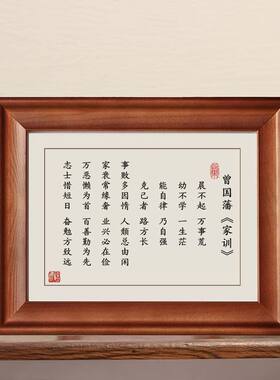 曾国藩《家训》
晨不起 万事荒
幼不学 一生茫
能自律 乃自强
克己者 路方长
事败多因惰 人颓总由闲
家衰常缘奢 业兴必在俭
万恶懒为首 百善勤为先
志士惜短日 奋勉方致远